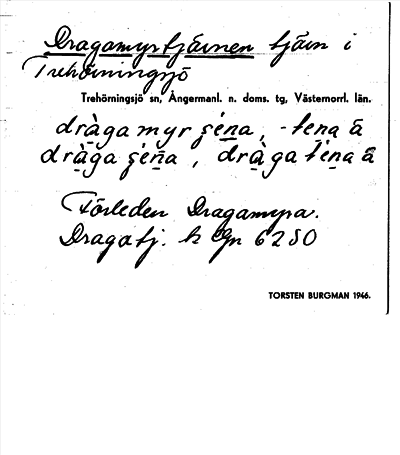 Dragamyrtjärnen tjärn i
Trehörningsjö
Trehörningsjö sn, Ångermanl. n. doms. tg, Västernorrl. län.
dràgamyr ʂèna, -tena ä
dràga ʂèna, dràga tèna ä
Förleden Dragamyra.
Dragatj. k Gn 6250
TORSTEN BURGMAN 1946.